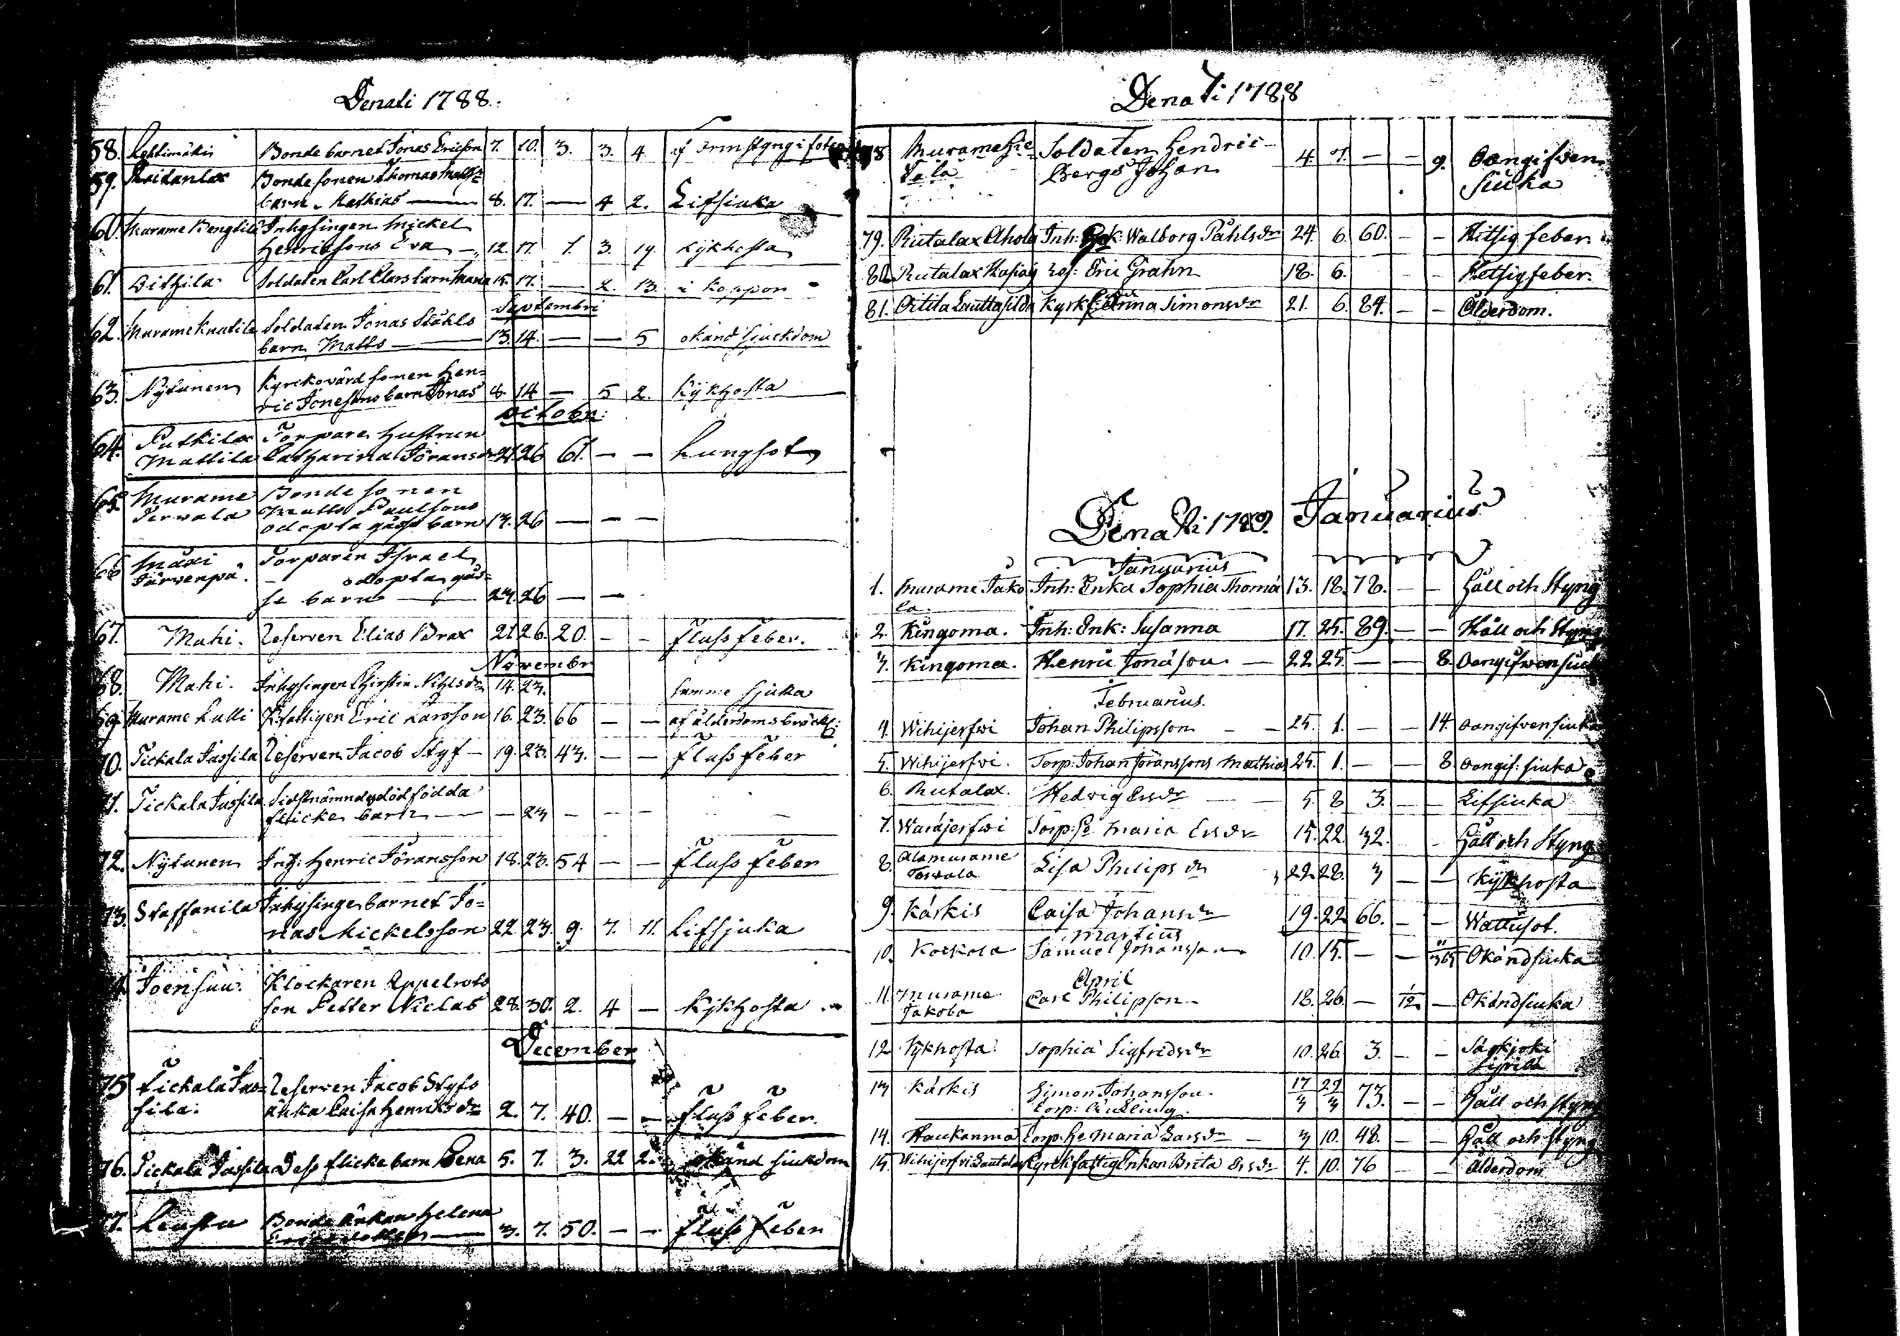 Denati 1788.
58. Lehtimäki Bonde barnet Jonas Ericson 7. 10. 3. 3. 4. af ormstyng i foten
59. Bondesonen Thomas
barn Mathias 8. 17. — 4 2. Lifsiuka
60. Murame Inhysingen Mickel
Henricsons Eva 12. 17. 1. 3. 14 kykhosta
61. Soldaten Carl Clars barn Maria 15. 17. — 2. 13. i koppor
Septembri
62. Murame Knutila Soldaten Jonas Ståhls
barn Matts 13. 14. — — 5 okänd siuckdom
63. Nyrunen Kyrkovärd sonen Hen-
ric Jonessons barn Jonas 8. 14 — 5 2. Kykhosta
Octobr:
64. Putkilax Torpare Hustrun
Mattila Catharina Göransdr 21. 26 61. — — Lungsot
65. Murame Bonde sonen
Terwala Matts Paulsons
odöpta gåsse barn 13. 26 — — —
66 Maxi Torparen Israel
Järvenpä. odöpta gås-
se barn 24. 26 — —
67. Mahi. Reserven Elias Brax 21. 26. 20. — — flussfeber.
Novembr
68. Mahi. Inhysingen Christin Nihlsdr 14. 23. samme sjuka
69. Murame Lulli Eric Larsson 16. 23. 66 — — af ålderdoms
70. Tickala Jussila Reserven Jacob Styf 19. 23. 43. — — flussfeber
71. Tickala Jussila Sistnämndes dödfödda
flicke barn — 23 — — —
72. Nyrunen Inh: Henric Göransson 18. 23. 54 — — fluss feber
73. Staffanila Inhysinge barnet Jo-
nas Mickelsson 22. 23. 9. 7. 11. Lifsjuka
74. Joensuu Klockaren Appelrots
son Petter Niclas 28. 30. 2. 4 — Kykhosta
December
75 Tickala Jus- Reserven Jacob Styfs
sila. änka Caisa Henriksdr 2. 7. 40. — — fluss feber.
76. Tickala Jussila Dess flickebarn Lena 5. 7. 3. 22 2. okänd siukdom
77. Leustu Bonde änkan Helena
3. 7. 50. — — fluss feber
Denati 1788
78 Murame Hie- Soldaten Hendric
tala Bergs Johan 4. 7. — — 9. Oangifwen
siuka
79. Rutalax Ahola Inh: Walborg Påhlsdr 24. 6. 60. — — Hitsig feber
80. Rutalax Res: Eric Grahn 18. 6. Hetsig feber.
81. Kyrk: Anna Simonsdr 21. 6. 84. — — Ålderdom.
Denati 1789. Januarius
Januarius
1. Murame Jako Inh: Enka Sophia Thomä 13. 18. 78. — — Håll och Styng
la.
2. Kingoma. Inh: Enk: Susanna 17. 25. 89. — — Håll och Styng
3. Kingoma. Henric Jonäson — 22 25. — — 8. Oangifwen siuka
Februarius.
4. Wihijerfwi Johan Philipsson 25. 1. — — 14. oangifven siuka
5. Wihijerfvi. Torp: Johan Göranssons Mathias 25. 1. — — 8 Oangif: siuka
6. Rutalax. Hedvig Ersdr 5. 8 3. — — Lifsiuka
7. Warájerfwi Torp: Maria Ersdr 15. 22. 32. — Håll och Styng
8. Alamurame
Terwala Lisa Philipsdr 22. 28. 3 — — Kykhosta
9. Kárkis Caisa Johansdr 19. 22 66. — — Wattusot.
Martius
10. Koskola Samuel Johansson 10. 15. — — Okändsiuka
April
11. Murame Carl Philipson 18. 26 — 1/12 — Okändsiuka
Jakola
12 Kykhosta. Sophia Sigfridsdr 10. 26. 3. — —
13 Kárkis Simon Johansson. 17/3 29/3 73. — — Håll och styng
14. Haukanma Torp: He Maria Larsdr 3 10. 48. — — Håll och Styng
15. Wihijerfvi Kyrckfattig Enkan Brita Ersdr 4. 10. 76 — — Ålderdom